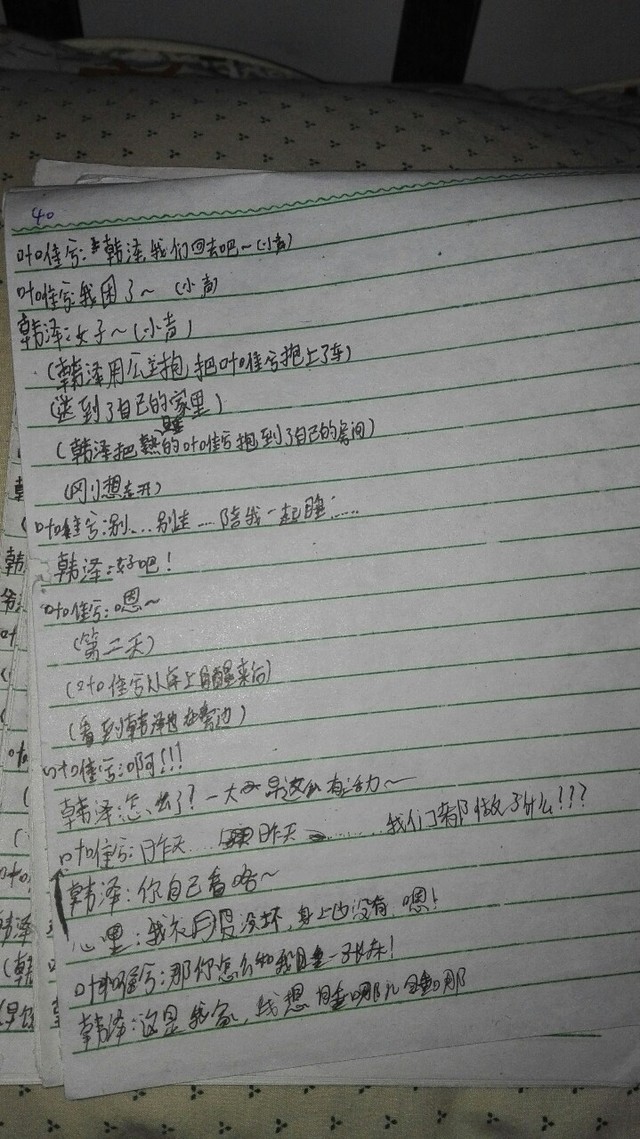 40
叶佳兮:韩泽,我们回去吧~(小声)
叶佳兮:我困了~(小声)
韩泽:好~(小声)
(韩泽用公主抱,把叶佳兮抱上了车)
(送到了自己的家里)
(韩泽把熟睡的叶佳兮抱到了自己的房间)
(刚想走开)
叶佳兮:别...别走....陪我一起睡......
韩泽:好吧!
叶佳兮:嗯~
(第二天)
(叶佳兮从床上醒来后)
(看到韩泽也在旁边)
叶佳兮:啊!!!
韩泽:怎么了?一大早这么有活力~
叶佳兮:昨天....昨天........我们都做了什么!!?
韩泽:你自己看咯~
心里:我衣服没坏,身上也没有,嗯!
叶佳兮:那你怎么和我睡一张床!
韩泽:这是我家,我想睡哪儿睡哪